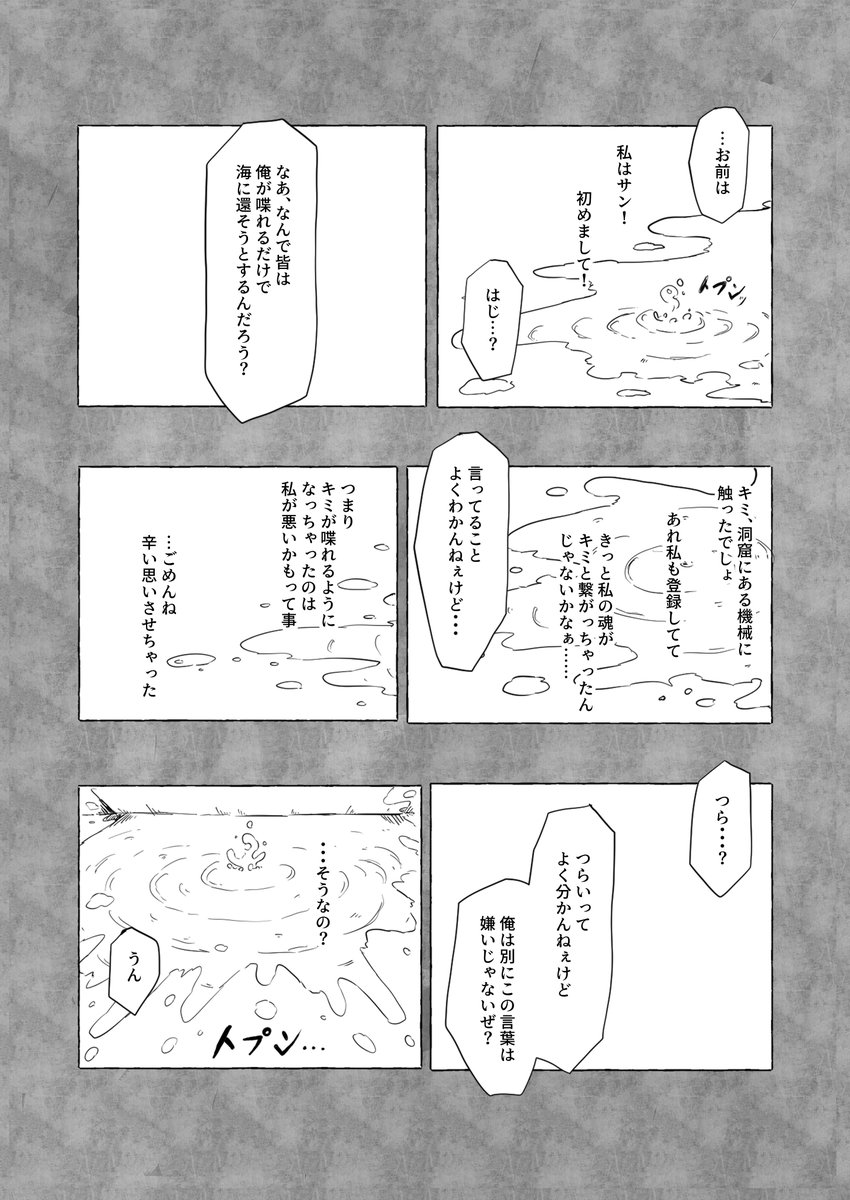 …お前は
私はサン！
初めまして！
はじ…？
トプンッ
なあ、なんで皆は
俺が喋れるだけで
海に還そうとするんだろう？
キミ、洞窟にある機械に
触ったでしょ
あれ私も登録してて
きっと私の魂が
キミと繋がっちゃったん
じゃないかなぁ……
言ってること
よくわかんねぇけど・・・
つまり
キミが喋れるように
なっちゃったのは
私が悪いかもって事
…ごめんね
辛い思いさせちゃった
つら・・・？
つらいって
よく分かんねぇけど
俺は別にこの言葉は
嫌いじゃないぜ？
・・・そうなの？
うん
トプン…